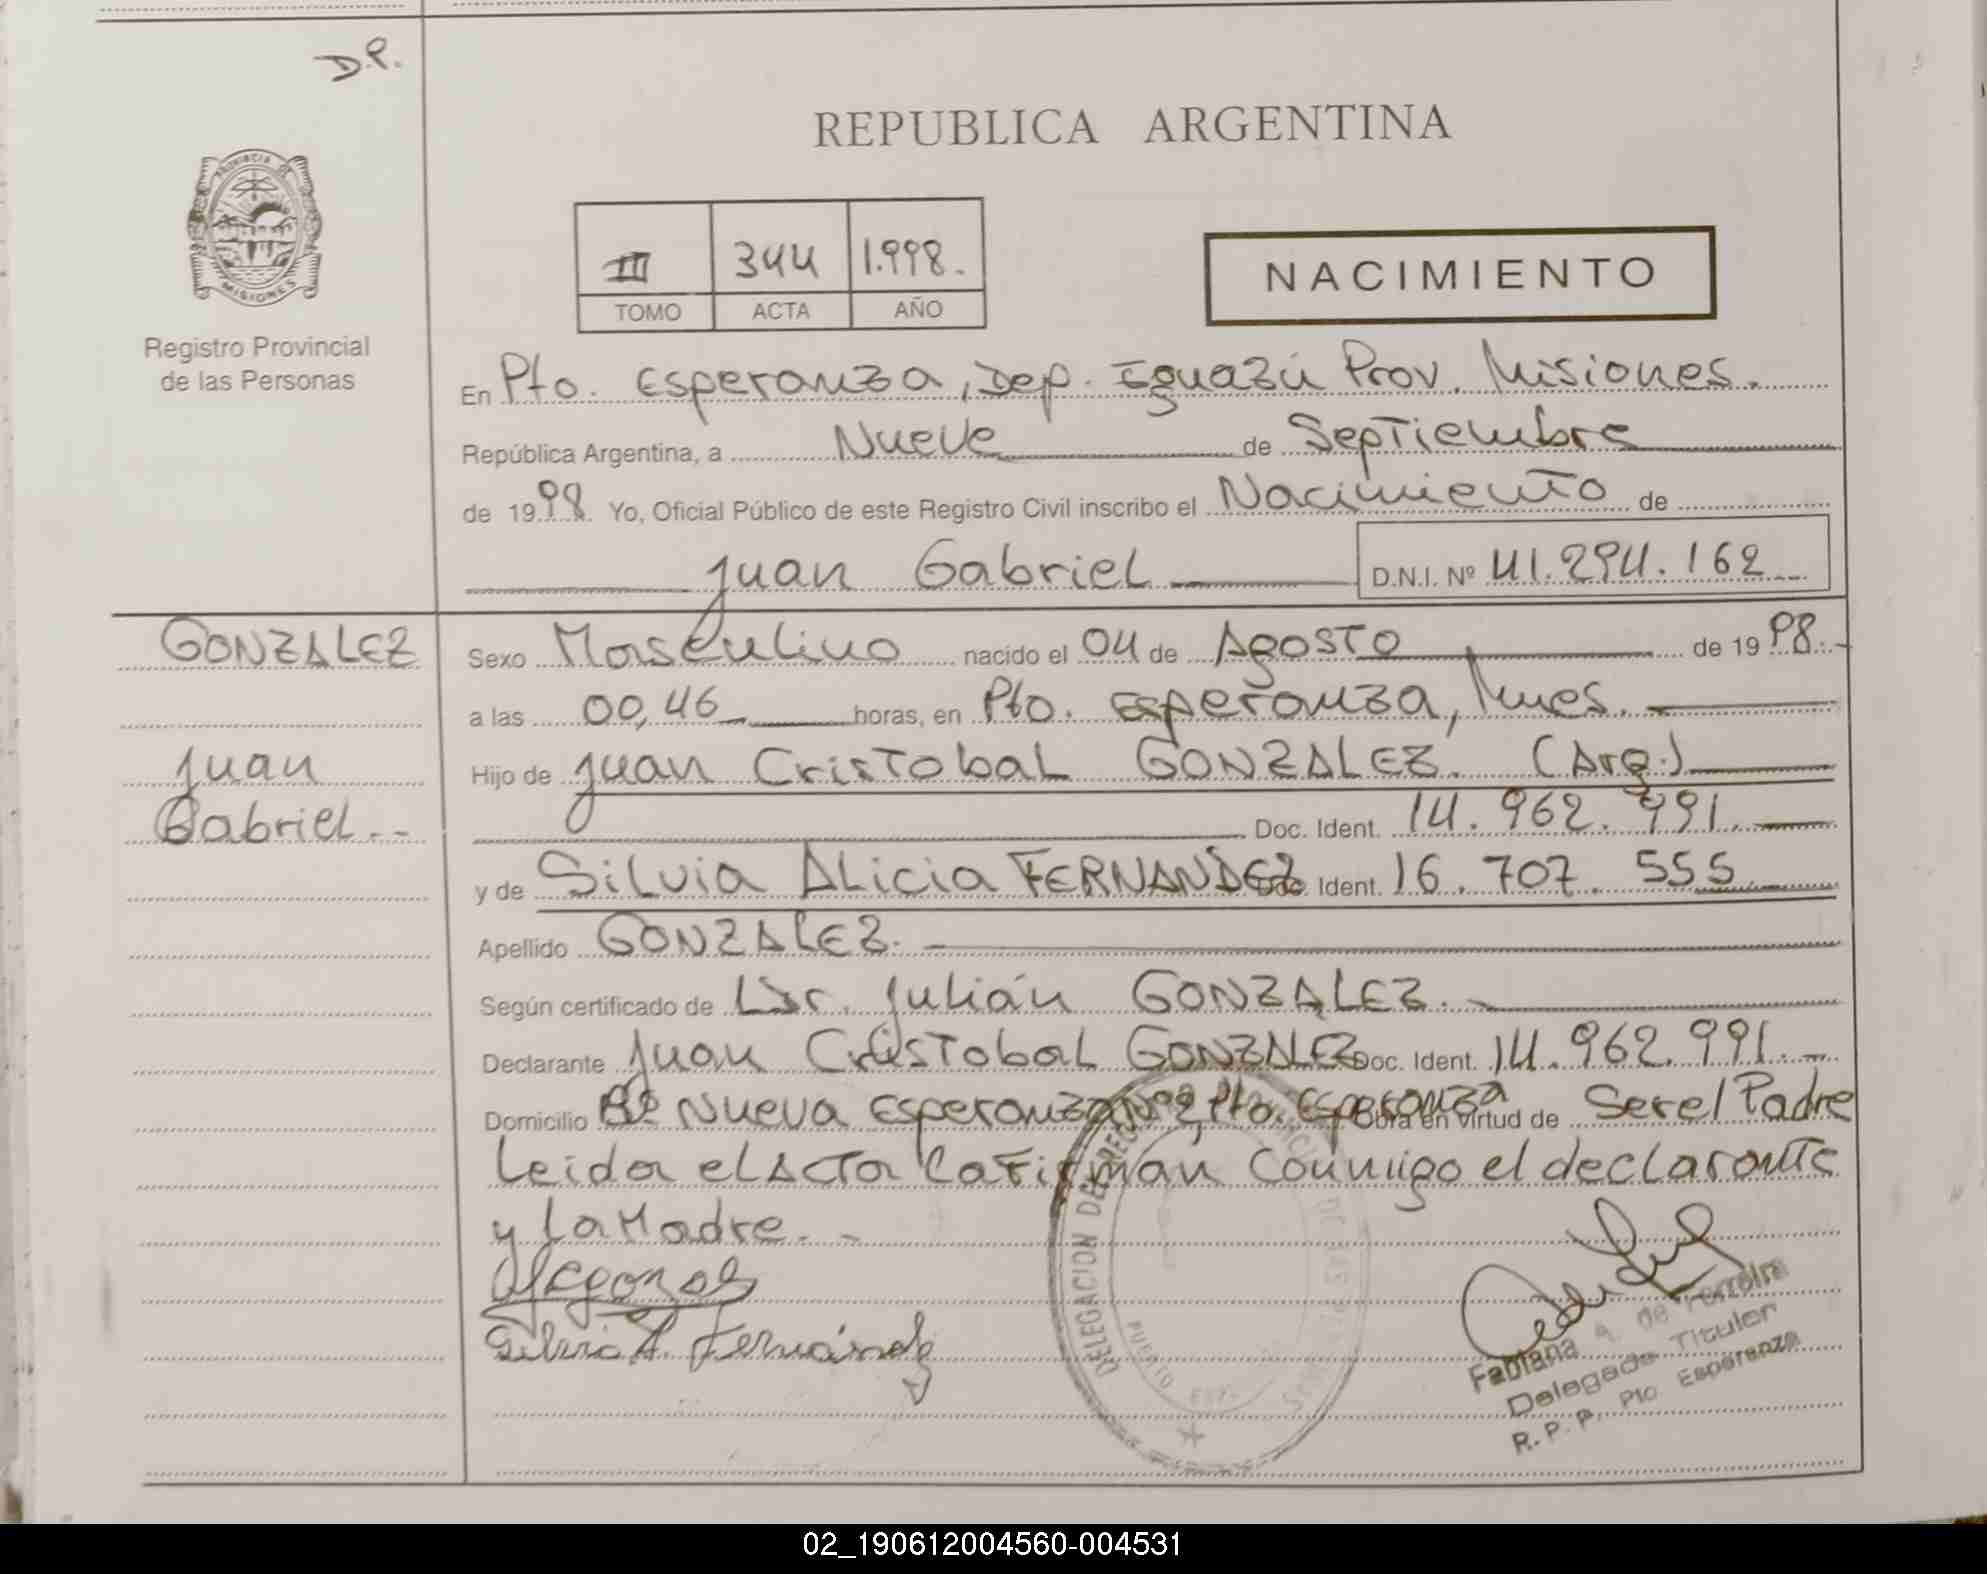 D.P.
REPUBLICA ARGENTINA
PROVINCIA DE
MISIONES
Registro Provincial
de las Personas
III 344 1.998.
TOMO ACTA AÑO
NACIMIENTO
En Pto. Esperanza, Dep. Iguazú Prov. Misiones.
República Argentina, a Nueve de Septiembre
de 1998 Yo, Oficial Público de este Registro Civil inscribo el Nacimiento de
Juan Gabriel D.N.I. Nº 41.294.162
GONZALEZ
Juan
Gabriel.-
Sexo Masculino nacido el 04 de Agosto de 1998.-
a las 00,46 horas, en Pto. Esperanza, Mnes.
Hijo de Juan Cristobal GONZALEZ. (Arg.)
Doc. Ident. 14.962.991.
y de Silvia Alicia FERNANDEZ Doc. Ident. 16.707.555
Apellido GONZALEZ.
Según certificado de Dr. Julián GONZALEZ.
Declarante Juan Cristobal GONZALEZ Doc. Ident. 14.962.991.-
Domicilio Bº Nueva Esperanza Nº 2 Pto. Esperanza Obra en virtud de Ser el Padre
Leida el Acta La Firman Conmigo el declarante
y La Madre.-
Silvia A. Fernández
DELEGACION DE REG
PUERTO ESP.
Fabiana A. de Ferreira
Delegada Titular
R.P.P. Pto Esperanza
02_190612004560-004531